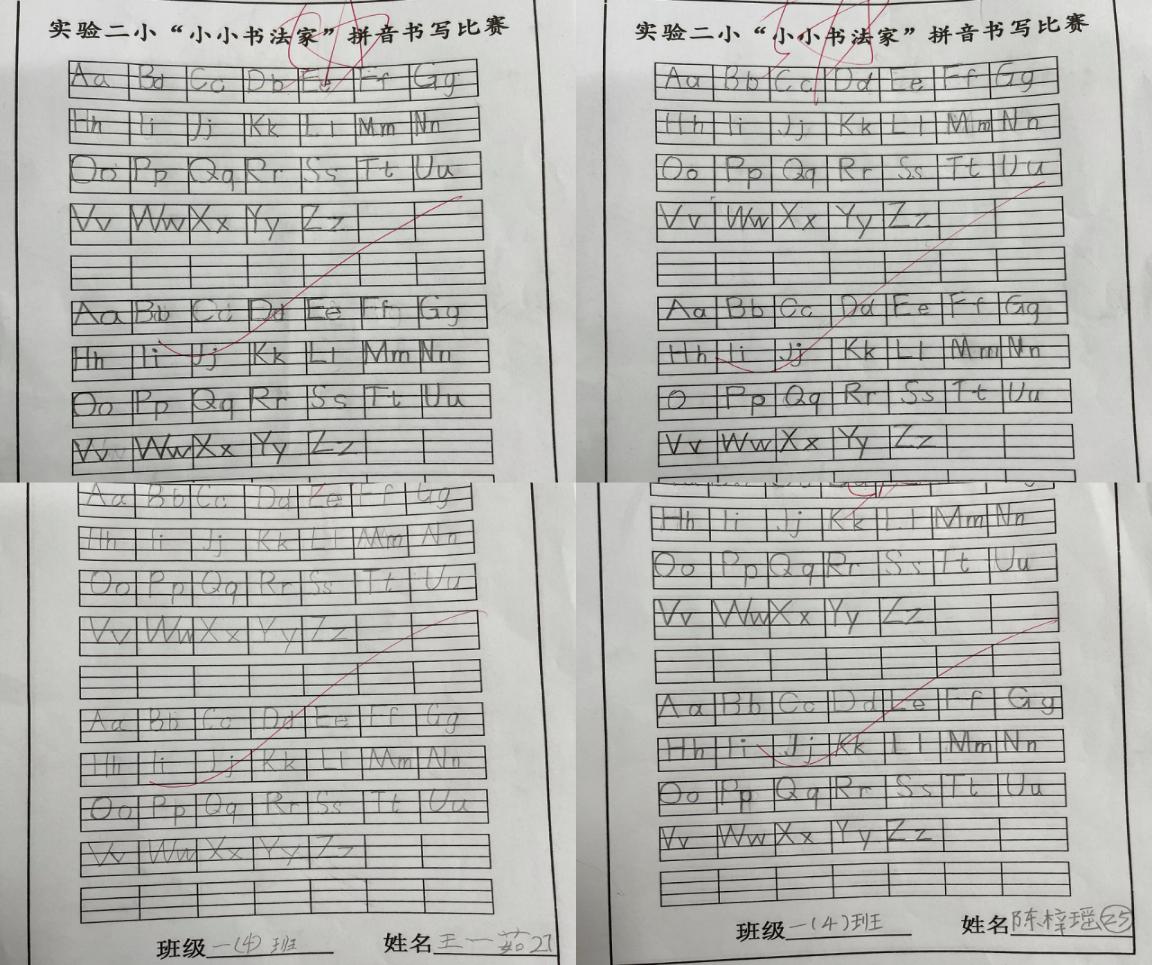 实验二小“小小书法家”拼音书写比赛
Aa Bd Cc Db Ee Ff Gg
Hh Ii Jj Kk Ll Mm Nn
Oo Pp Qq Rr Ss Tt Uu
Vv Ww Xx Yy Zz
Aa Bb Cc Dd Ee Ff Gg
Hh Ii Jj Kk Ll Mm Nn
Oo Pp Qq Rr Ss Tt Uu
Vv Ww Xx Yy Zz
实验二小“小小书法家”拼音书写比赛
Aa Bb Cc Dd Ee Ff Gg
Hh Ii Jj Kk Ll Mm Nn
Oo Pp Qq Rr Ss Tt Uu
Vv Ww Xx Yy Zz
Aa Bb Cc Dd Ee Ff Gg
Hh Ii Jj Kk Ll Mm Nn
O Pp Qq Rr Ss Tt Uu
Vv Ww Xx Yy Zz
Aa Bb Cc Dd Ee Ff Gg
Hh Ii Jj Kk Ll Mm Nn
Oo Pp Qq Rr Ss Tt Uu
Vv Ww Xx Yy Zz
Aa Bb Cc Dd Ee Ff Gg
Hh Ii Jj Kk Ll Mm Nn
Oo Pp Qq Rr Ss Tt Uu
Vv Ww Xx Yy Zz
班级一(4)班 姓名王一茹27
Hh Ii Jj Kk Ll Mm Nn
Oo Pp Qq Rr Ss Tt Uu
Vv Ww Xx Yy Zz
Aa Bb Cc Dd Ee Ff Gg
Hh Ii Jj Kk Ll Mm Nn
Oo Pp Qq Rr Ss Tt Uu
Vv Ww Xx Yy Zz
班级一(4)班 姓名陈梓瑶25